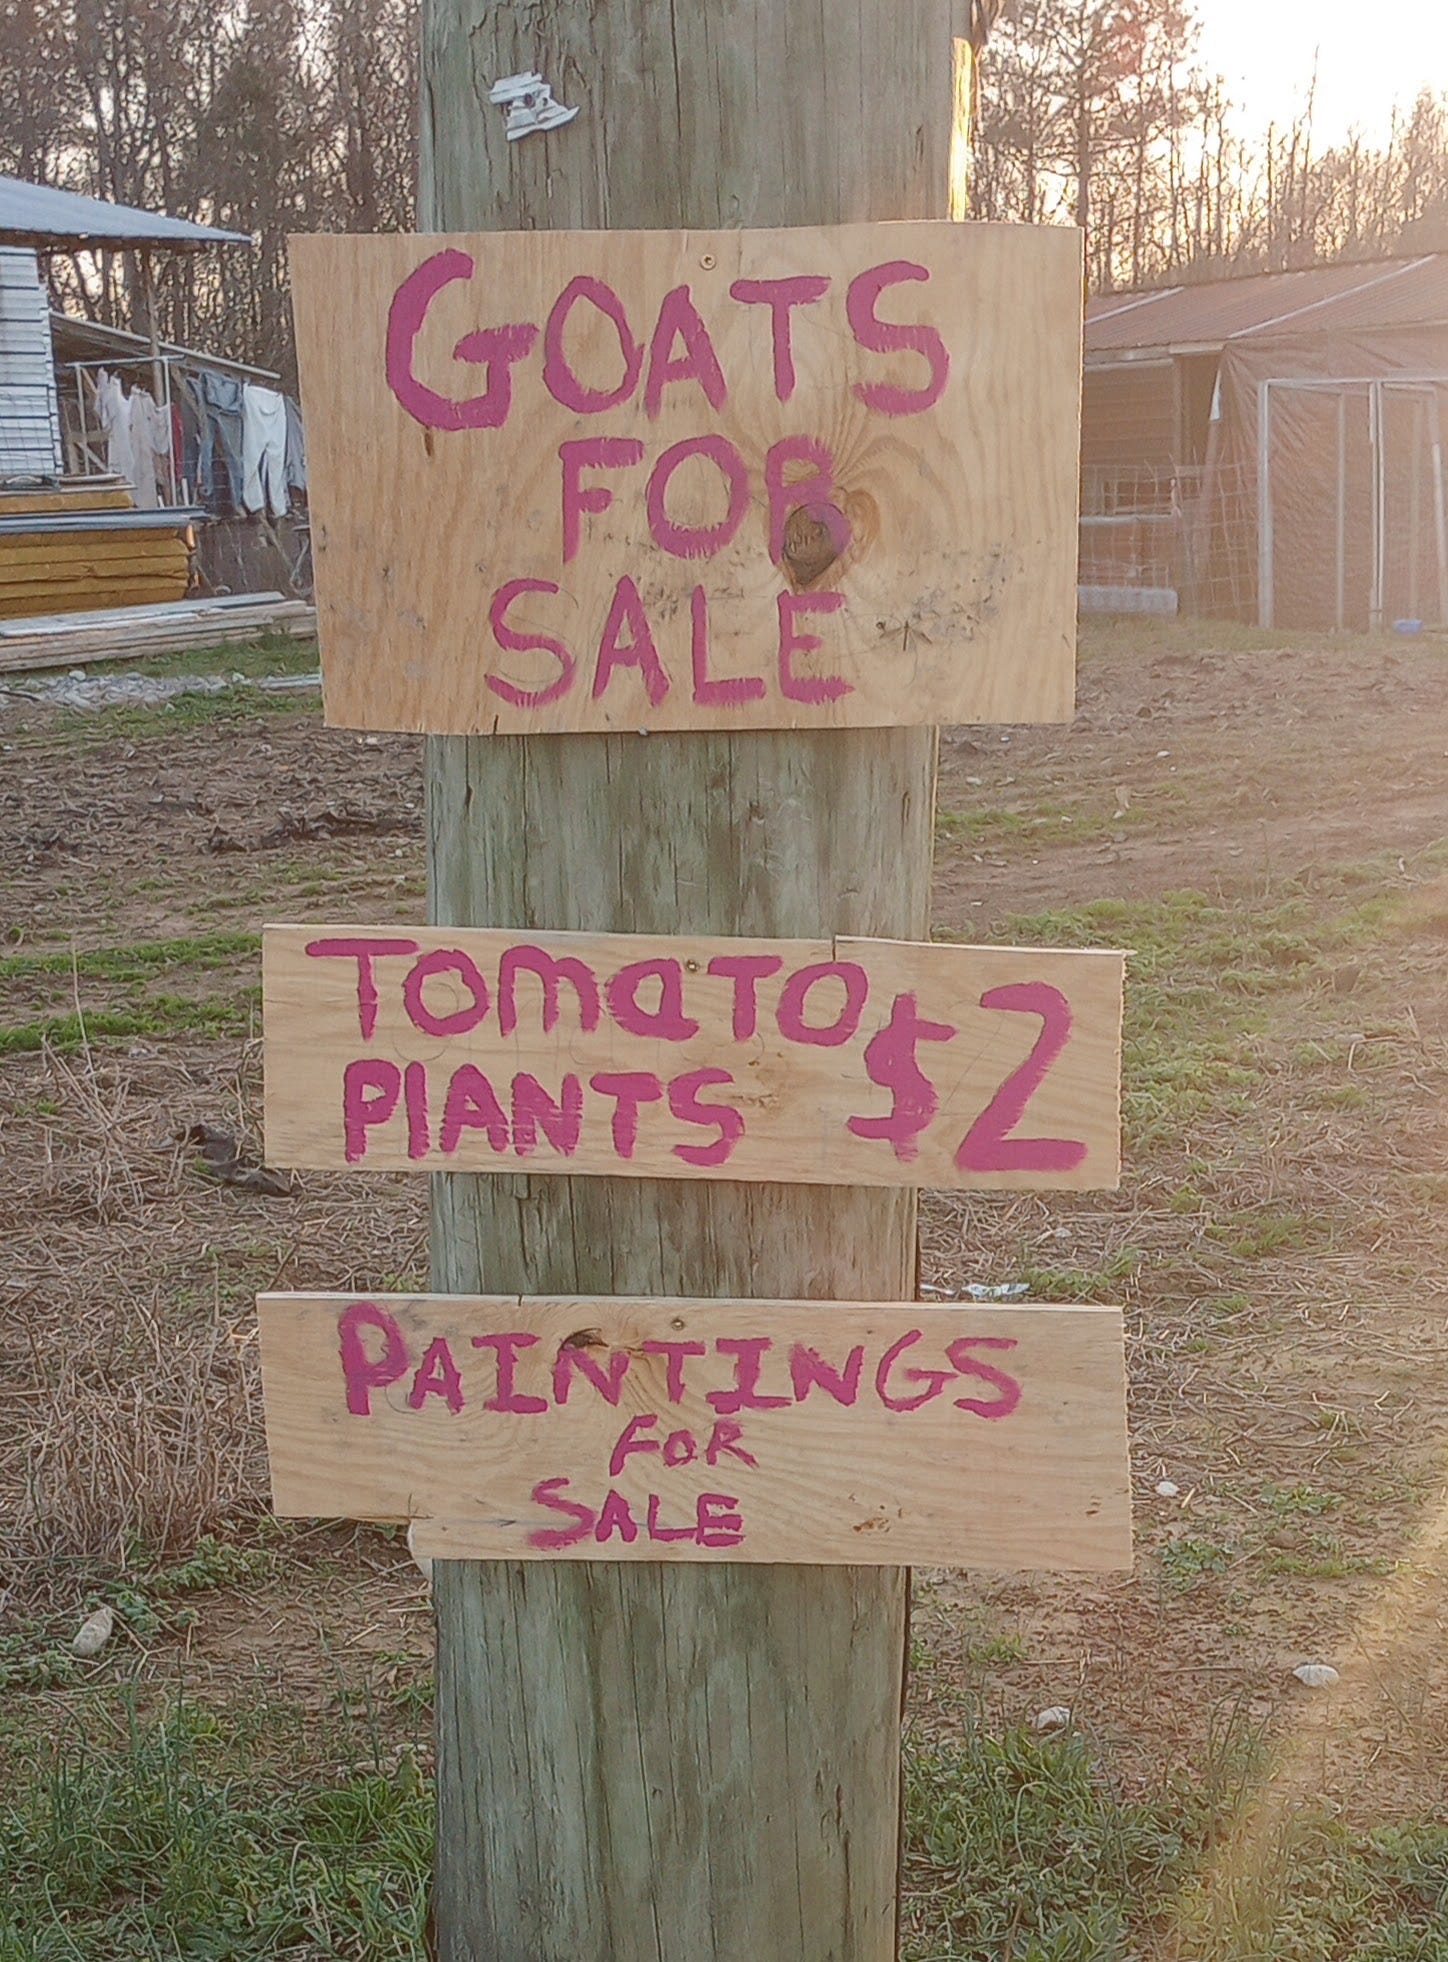 GOATS
FOR
SALE
TOMATO
PLANTS $2
PAINTINGS
FOR
SALE